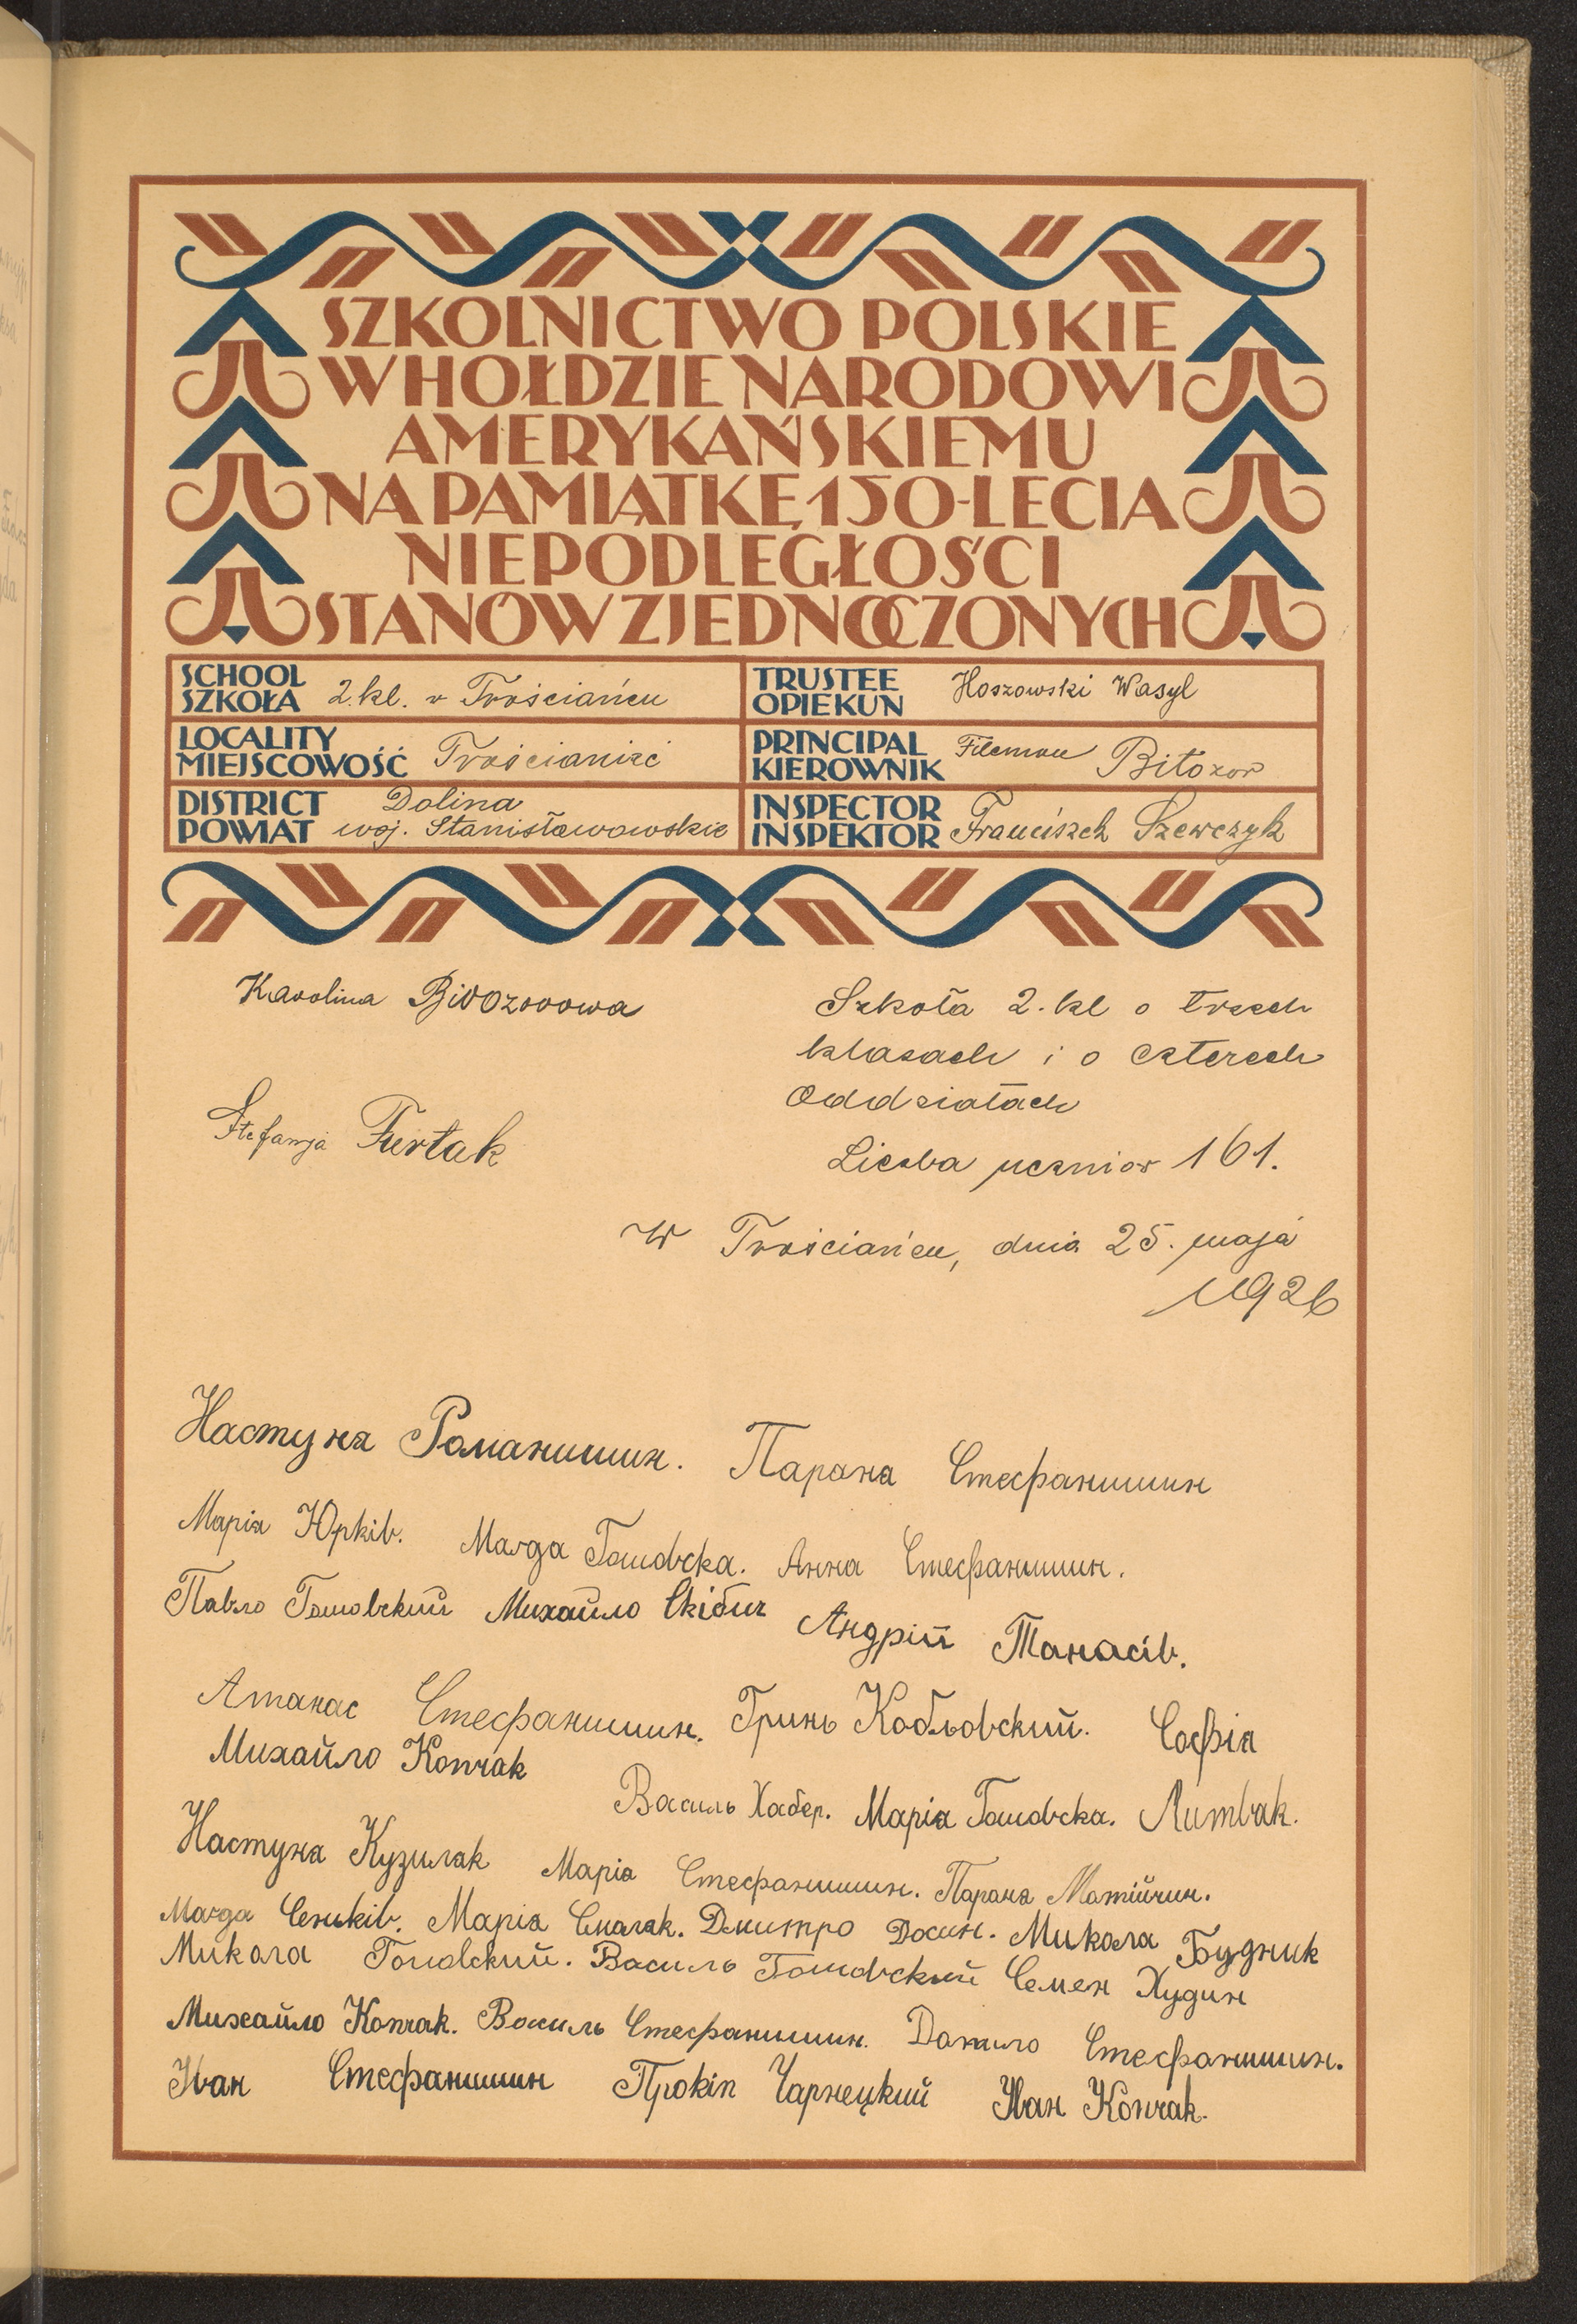 SZKOLNICTWO POLSKIE
W HOŁDZIE NARODOWI
AMERYKAŃSKIEMU
NA PAMIĄTKĘ 150-LECIA
NIEPODLEGŁOŚCI
STANÓW ZJEDNOCZONYCH
SCHOOL
SZKOŁA 2. kl. w Trościańcu
TRUSTEE
OPIEKUN Hoszowski Wasyl
LOCALITY
MIEJSCOWOŚĆ Trościaniec
PRINCIPAL
KIEROWNIK Filemon Biłozor
DISTRICT Dolina
POWIAT woj. Stanisławowskie
INSPECTOR
INSPEKTOR Franciszek Szewczyk
Karolina
Stefanja Furtak
Szkoła 2. kl o trzech
klasach i o czterech
Oddziałach
Liczba uczniów 161.
W Trościańcu, dnia 25. maja
1926
Настуня Романишин. Параня Стефанишин
Марія Юрків. Магда Гошовска. Анна Стефанишин.
Павло Гошовский Михайло Скібич Андрій Танасів.
Атанас Стефанишин. Гринь Кобльовский. Софія
Михайло Копчак Василь Хабер. Марія Гошовска. Литвак.
Настуня Кузиляк Марія Стефанишин. Параня Матійчин.
Магда Сеньків. Марія Смаляк. Дмитро Досин. Микола Будник
Микола Гошовский. Василь Гошовский Семен Худин
Михайло Копчак. Василь Стефанишин. Данило Стефанишин.
Іван Стефанишин Прокіп Чарнецкий Іван Копчак.